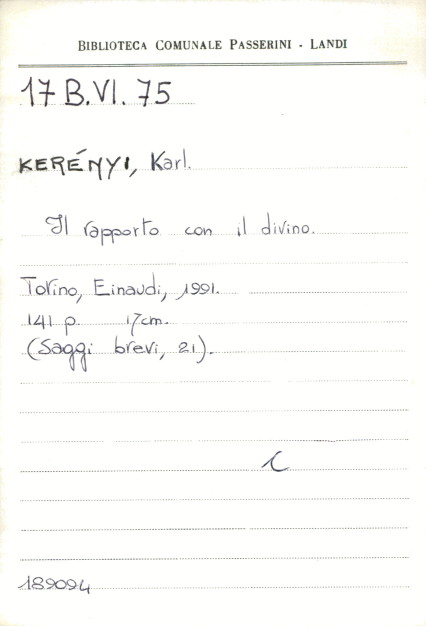 BIBLIOTECA COMUNALE PASSERINI - LANDI
17 B.VI. 75
KERÉNYI, Karl.
Il rapporto con il divino.
Torino, Einaudi, 1991.
141 p. 17cm.
(Saggi brevi, 21).
C
189094